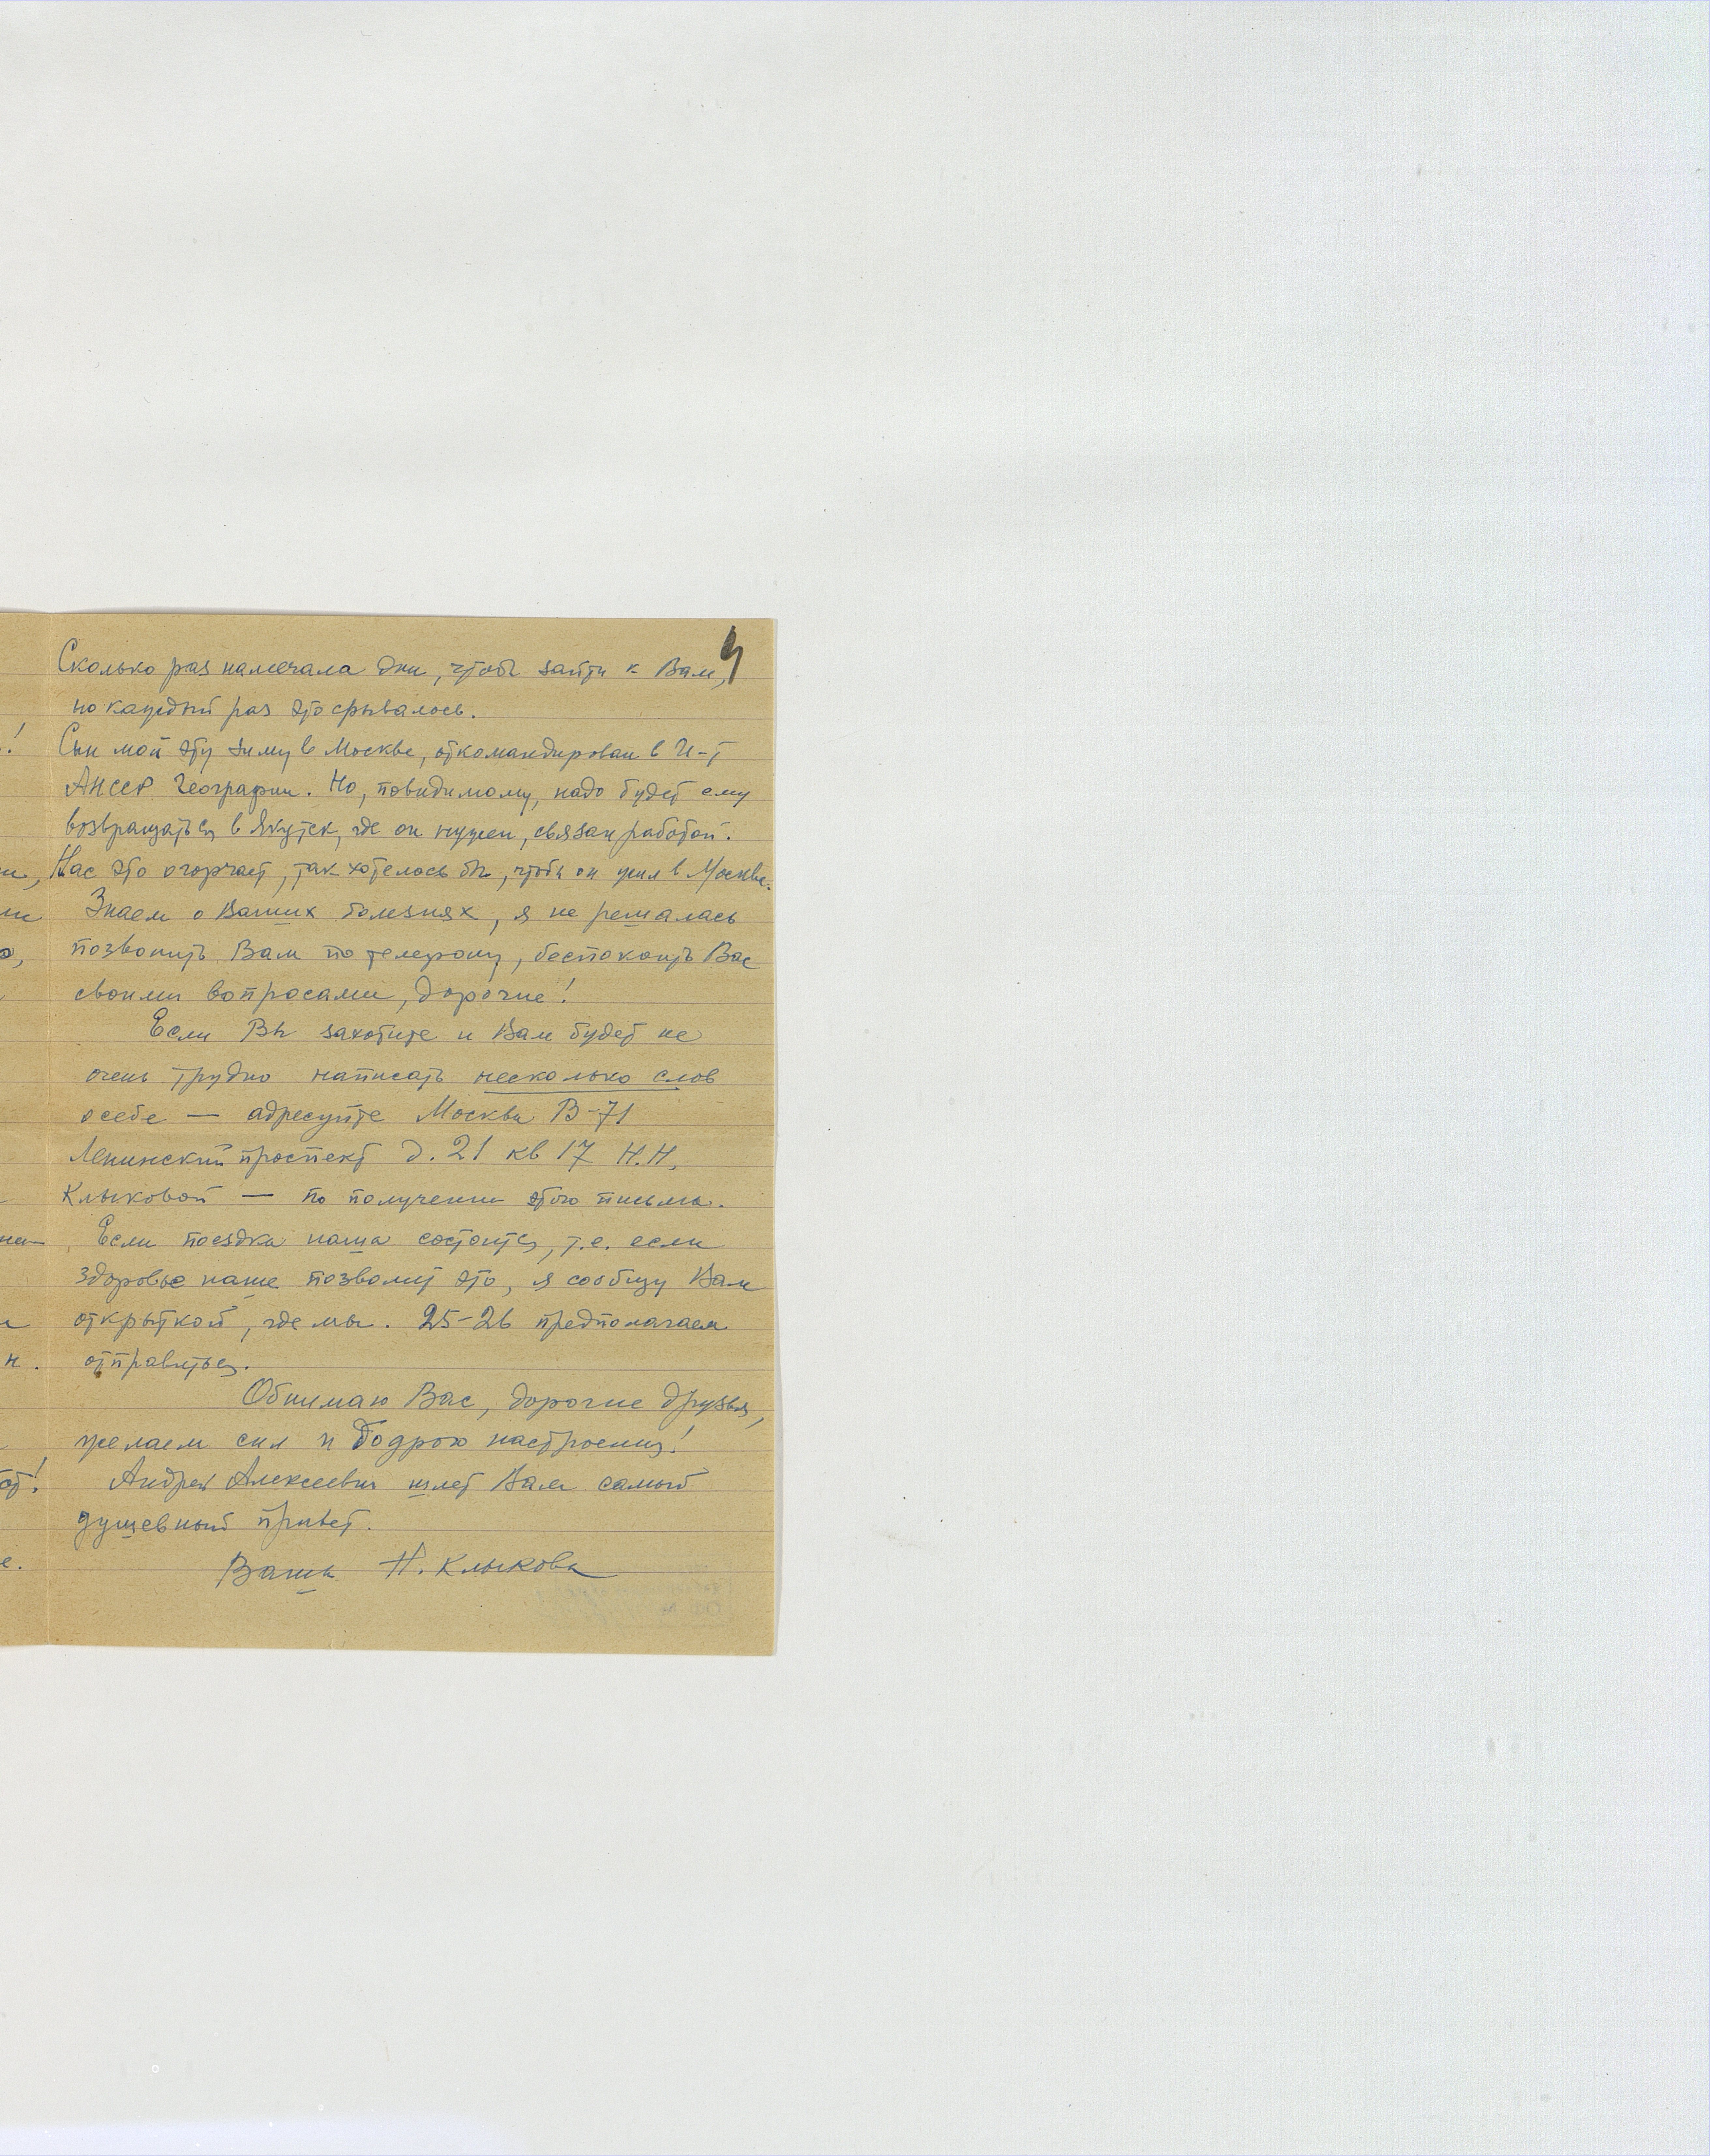 Сколько раз намечала дни, чтобы зайти к Вам,
но каждый раз это срывалось.
Сын мой эту зиму в Москве, откомандирован в И-т
АНССР Географии. Но, повидимому, надо будет ему
возвращаться в Якутск, где он нужен, связан работой.
Нас это огорчает, так хотелось бы, чтобы он жил в Москве.
Знаем о Ваших болезнях, я не решалась
позвонить Вам по телефону, беспокоить Вас
своими вопросами, дорогие!
Если Вы захотите и Вам будет не
очень трудно написать несколько слов
о себе — адресуйте Москва В-71
Ленинский проспект д. 21 кв 17 Н.Н.
Клыковой — по получении этого письма.
Если поездка наша состоится, т.е. если
здоровье наше позволит это, я сообщу Вам
открыткой, где мы. 25-26 предполагаем
отправиться.
Обнимаю Вас, дорогие друзья,
желаем сил и бодрого настроения!
Андрей Алексеевич шлет Вам самый
душевный привет.
Ваша Н. Клыкова